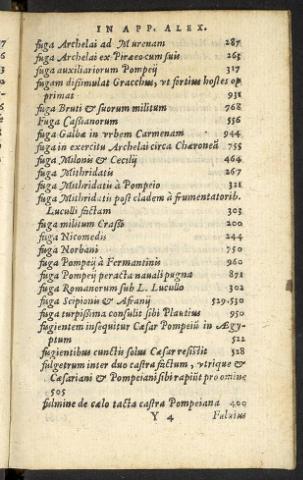 IN APP. ALEX.
fuga Archelai ad Murenam 287
fuga Archelai ex Piræeo cum suis 265
fuga auxiliariorum Pompeij 317
fugam dissimulat Gracchus, vt fortius hostes op
primat 931
fuga Bruti & suorum militum 768
Fuga Cassianorum 556
fuga Galbæ in vrbem Carmenam 944
fuga in exercitu Archelai circa Chæroneã 755
fuga Milonis & Cecilij 464
fuga Mithridatis 267
fuga Mithridatis à Pompeio 321
fuga Mithridatis post cladem à frumentatorib.
Luculli factam 303
fuga militum Crassi 200
fuga Nicomedis 244
fuga Norbani 750
fuga Pompeij à Fermantinis 960
fuga Pompeij peracta nauali pugna 871
fuga Romanorum sub L. Lucullo 302
fuga Scipionis & Afranij 529.530
fuga turpissima consulis sibi Plautius 950
fugientem insequitur Cæsar Pompeiũ in Ægy-
ptum 522
fugientibus cunctis solus Cæsar resistit 528
fulgetrum inter duo castra factum, vtrique &
Cæsariani & Pompeiani sibi rapiũt pro omine
505
fulmine de cælo tacta castra Pompeiana 400
Y 4 Fuluius